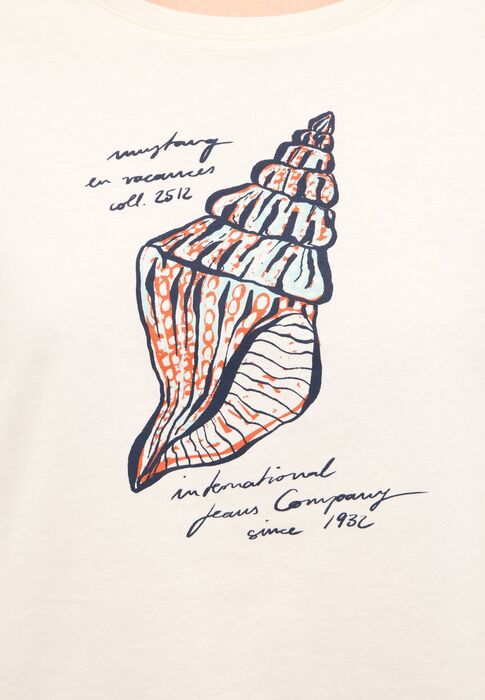 mustang
en vacances
coll. 2512
international
Jeans Company
since 1932